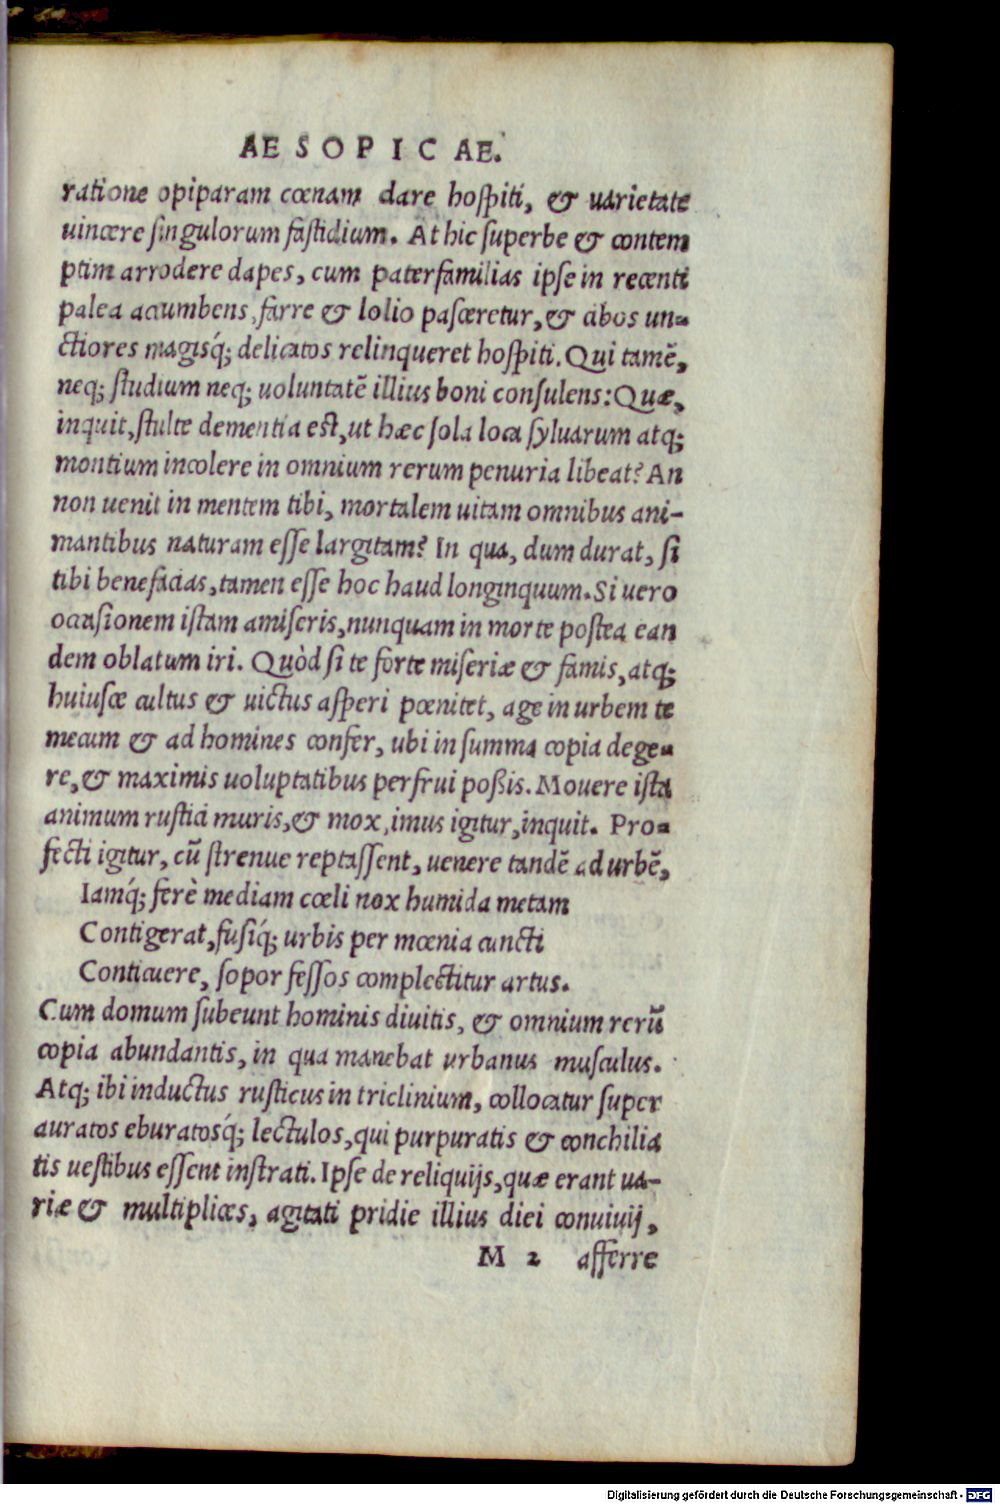 AESOPICAE.
ratione opiparam cœnam dare hoſpiti, & uarietate
uincere ſingulorum faſtidium. At hic ſuperbe & contem
ptim arrodere dapes, cum paterfamilias ipſe in recenti
palea accumbens, farre & lolio paſceretur, & cibos un-
ctiores magisq́; delicatos relinqueret hoſpiti. Qui tamē,
neq; ſtudium neq; uoluntatē illius boni conſulens: Quæ,
inquit, ſtulte dementia eſt, ut hæc ſola loca ſyluarum atq;
montium incolere in omnium rerum penuria libeat? An
non uenit in mentem tibi, mortalem uitam omnibus ani-
mantibus naturam eſſe largitam? In qua, dum durat, ſi
tibi benefacias, tamen eſſe hoc haud longinquum. Si uero
occaſionem iſtam amiſeris, nunquam in morte poſtea ean
dem oblatum iri. Quòd ſi te forte miſeriæ & famis, atq;
huiuſce cultus & uictus aſperi pœnitet, age in urbem te
mecum & ad homines confer, ubi in ſumma copia dege-
re, & maximis uoluptatibus perfrui poßis. Mouere iſta
animum ruſtici muris, & mox, imus igitur, inquit. Pro-
fecti igitur, cū ſtrenue reptaſſent, uenere tandē ad urbē,
Iamq́; ferè mediam cœli nox humida metam
Contigerat, fuſiq́; urbis per mœnia cuncti
Conticuere, ſopor feſſos complectitur artus.
Cum domum ſubeunt hominis diuitis, & omnium rerū
copia abundantis, in qua manebat urbanus muſculus.
Atq; ibi inductus ruſticus in triclinium, collocatur ſuper
auratos eburatosq́; lectulos, qui purpuratis & conchilia
tis ueſtibus eſſent inſtrati. Ipſe de reliquijs, quæ erant ua-
riæ & multiplices, agitati pridie illius diei conuiuij,
M 2 afferre
Digitalisierung gefördert durch die Deutsche Forschungsgemeinschaft - DFG